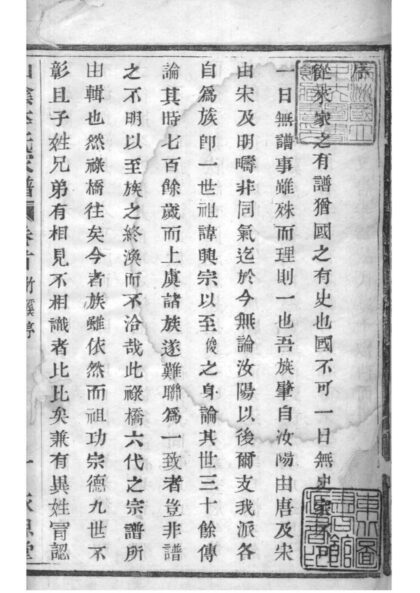 序
從來家之有譜猶國之有史也國不可一日無史家不可
一日無譜事雖殊而理則一也吾族肇自汝陽由唐及宋
由宋及明疇非同氣迄於今無論汝陽以後爾支我派各
自為族即一世祖諱興宗以至俊之身論其世三十餘傳
論其時七百餘歲而上虞諸族遂難聯為一致者豈非譜
之不明以至族之終渙而不洽哉此祿橋六代之宗譜所
由輯也然祿橋往矣今者族雖依然而祖功宗德九世不
彰且子姓兄弟有相見不相識者比比矣兼有異姓冒認
山陰李氏家譜 卷首 序 一